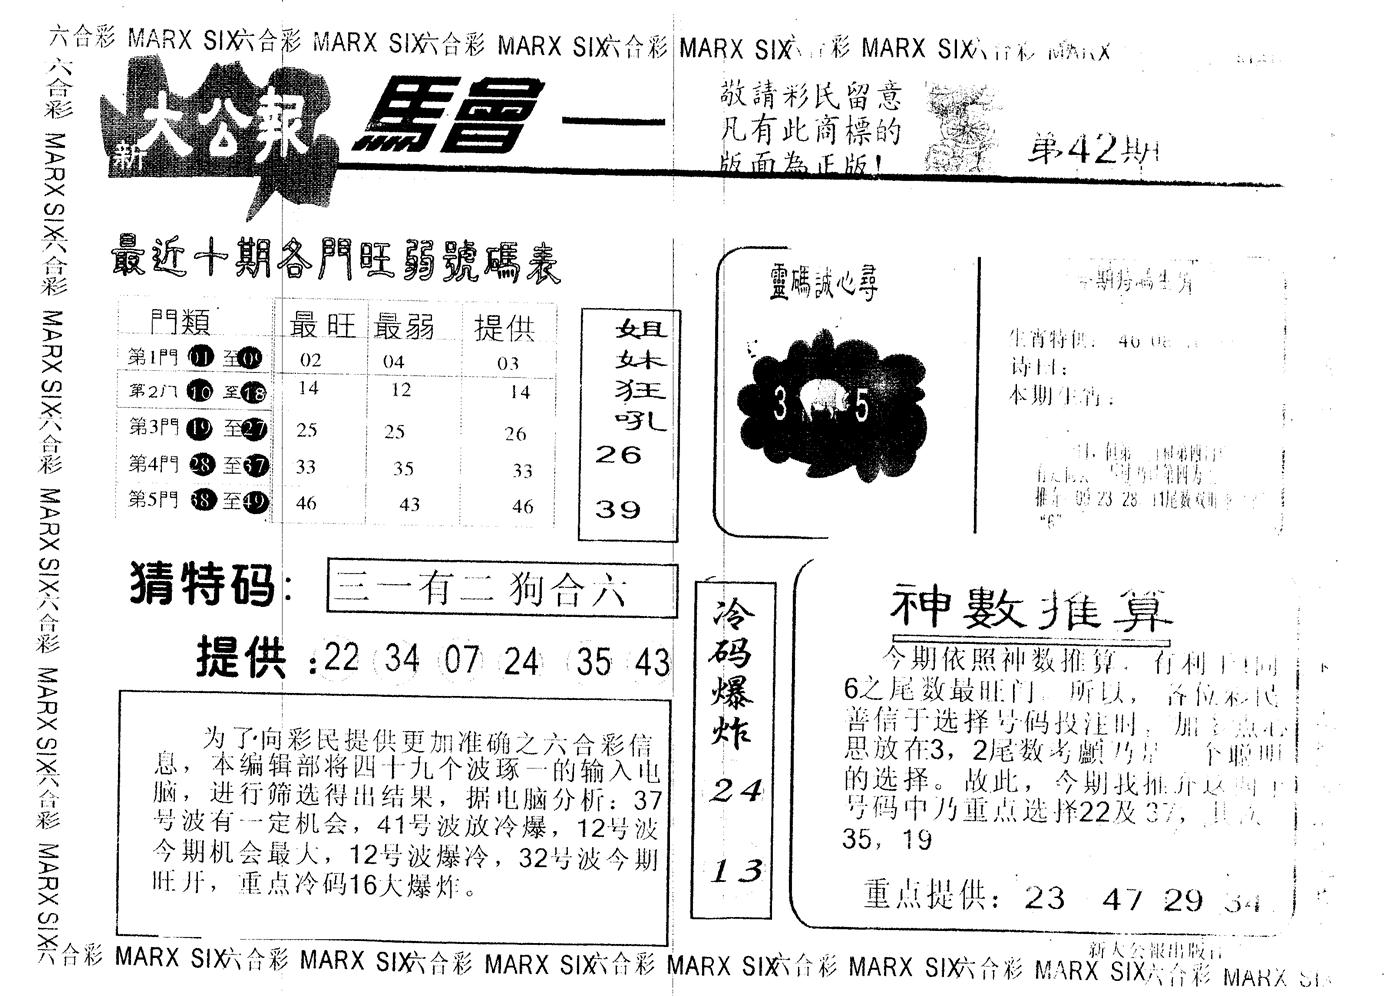 六合彩 MARX SIX六合彩 MARX SIX六合彩 MARX SIX六合彩 MARX SIX六合彩 MARX SIX六合彩 MARX
六合彩 MARX SIX六合彩 MARX SIX六合彩 MARX SIX六合彩 MARX SIX六合彩 MARX SIX
新大公報
馬會一
敬請彩民留意
凡有此商標的
版面為正版!
第42期
最近十期各門旺弱號碼表
門類 最旺 最弱 提供
第1門 01 至09 02 04 03
第2门 10 至18 14 12 14
第3門 19 至27 25 25 26
第4門 28 至37 33 35 33
第5門 38 至49 46 43 46
姐妹狂吼
26
39
靈碼誠心尋
3 5
期特碼生肖
生肖特供: 46 08
诗曰:
本期生肖:
09 23 28
“6”
猜特码:
三一有二狗合六
提供:22 34 07 24 35 43
为了向彩民提供更加准确之六合彩信
息，本编辑部将四十九个波琢一的输入电
脑，进行筛选得出结果，据电脑分析：37
号波有一定机会，41号波放冷爆，12号波
今期机会最大，12号波爆冷，32号波今期
旺开，重点冷码16大爆炸。
冷码爆炸
24
13
神數推算
今期依照神数推算，有利于
6之尾数最旺门。所以，各位彩民
善信于选择号码投注时，加
思放在3，2尾数考顱乃是一个聪明
的选择。故此，今期我推介这
号码中乃重点选择22及37，其次
35，19
重点提供：23 47 29 34
新大公報出版社
六合彩 MARX SIX六合彩 MARX SIX六合彩 MARX SIX六合彩 MARX SIX六合彩 MARX SIX六合彩 MARX SIX六合彩 MARX SIX